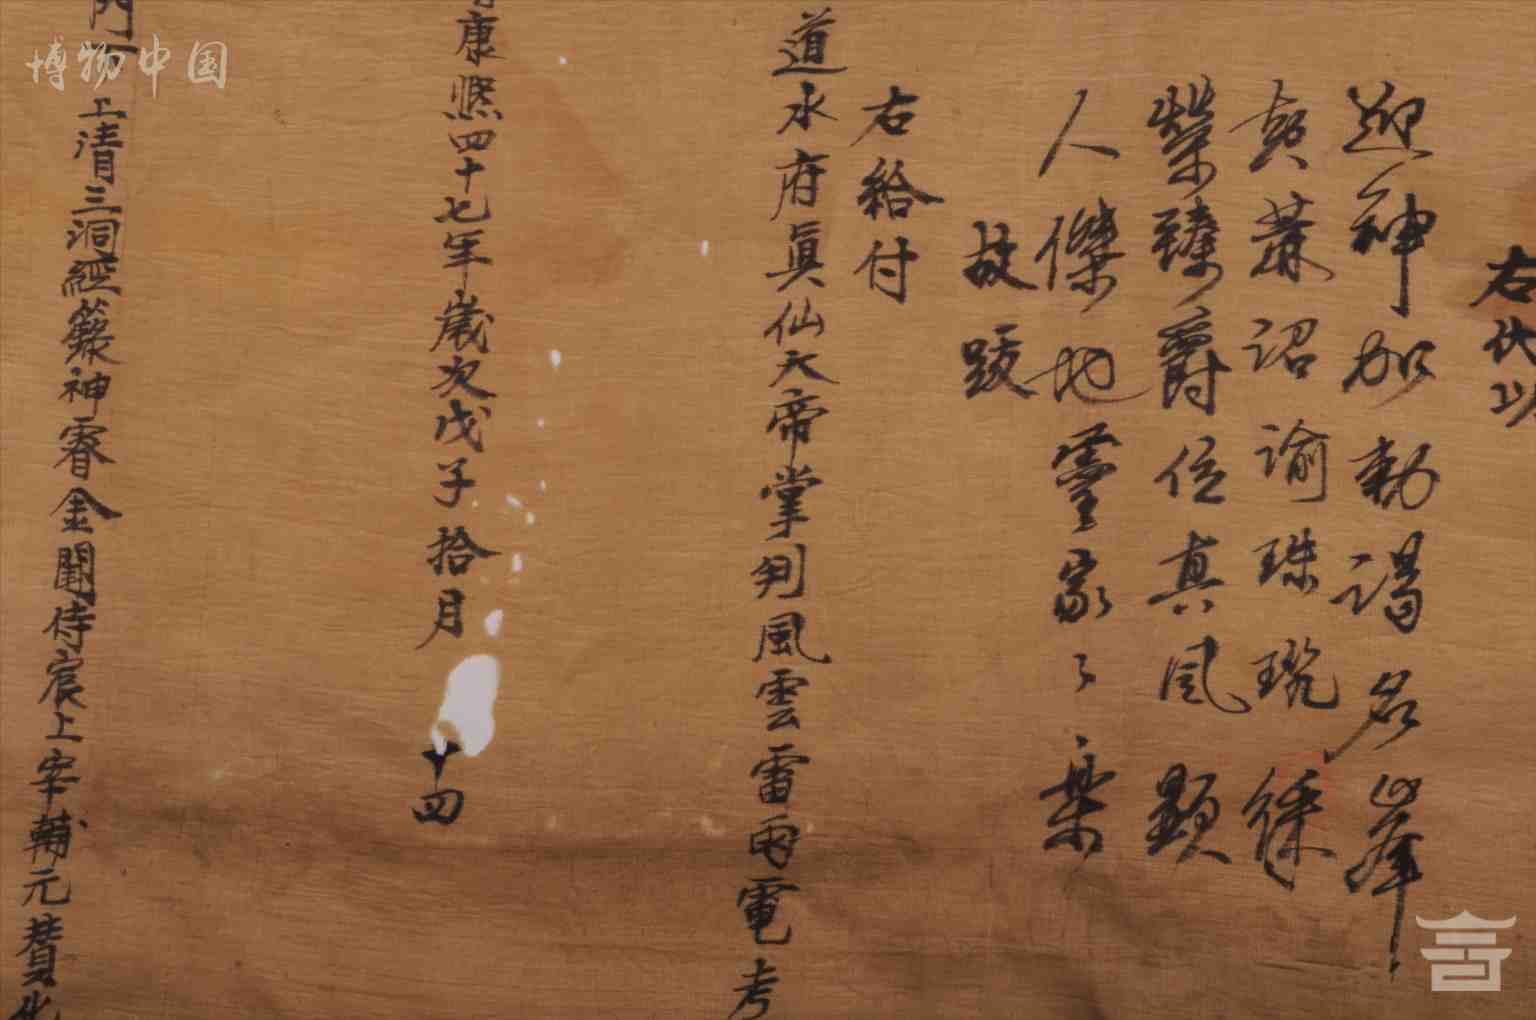 右伏以
迎神加勅謁名峯
詔諭珠
榮臻爵位真風顯
人傑地靈家々樂
故跋
右給付
道水府眞仙大帝掌判風雲雷雨電考
康熙四十七年歲次戊子拾月十四
門
上清三洞經籙神霄金闕侍宸上宰輔元贊化
博物中国